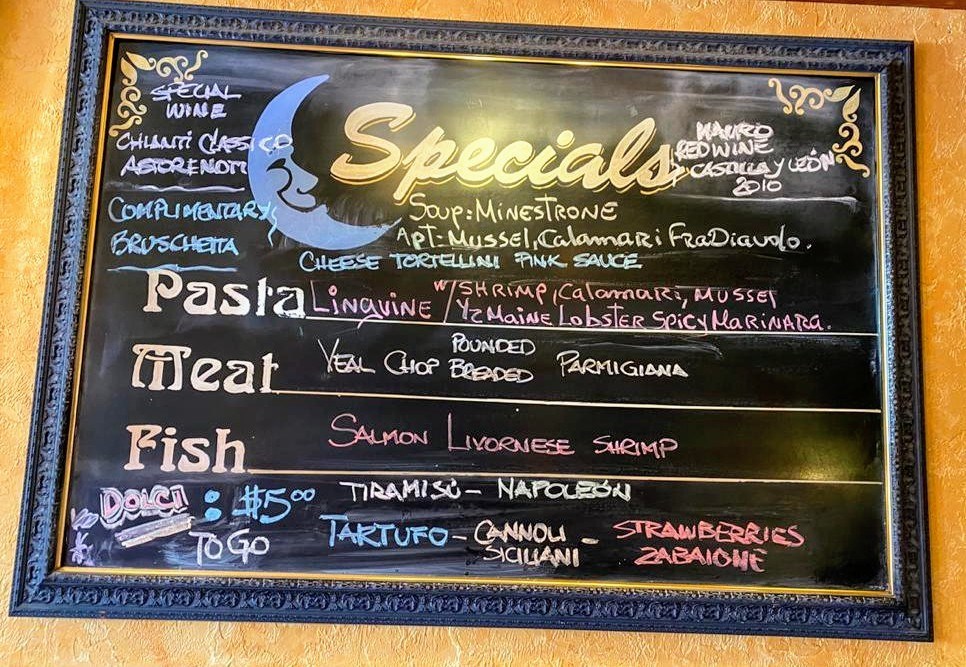 SPECIAL
WINE
CHIANTI CLASSICO
Specials
MAURO
RED WINE
CASTILLA Y LEÓN
2010
COMPLIMENTARY
BRUSCHETTA
SOUP: MINESTRONE
APT: MUSSEL, CALAMARI FRADIAVOLO.
CHEESE TORTELLINI PINK SAUCE
Pasta LINGUINE W/ SHRIMP, CALAMARI, MUSSEL
1/2 MAINE LOBSTER SPICY MARINARA.
Meat VEAL CHOP POUNDED BREADED PARMIGIANA
Fish SALMON LIVORNESE SHRIMP
DOLCI : $5.00 TIRAMISÚ - NAPOLEÓN
TO GO TARTUFO - CANNOLI SICILIANI - STRAWBERRIES ZABAIONE